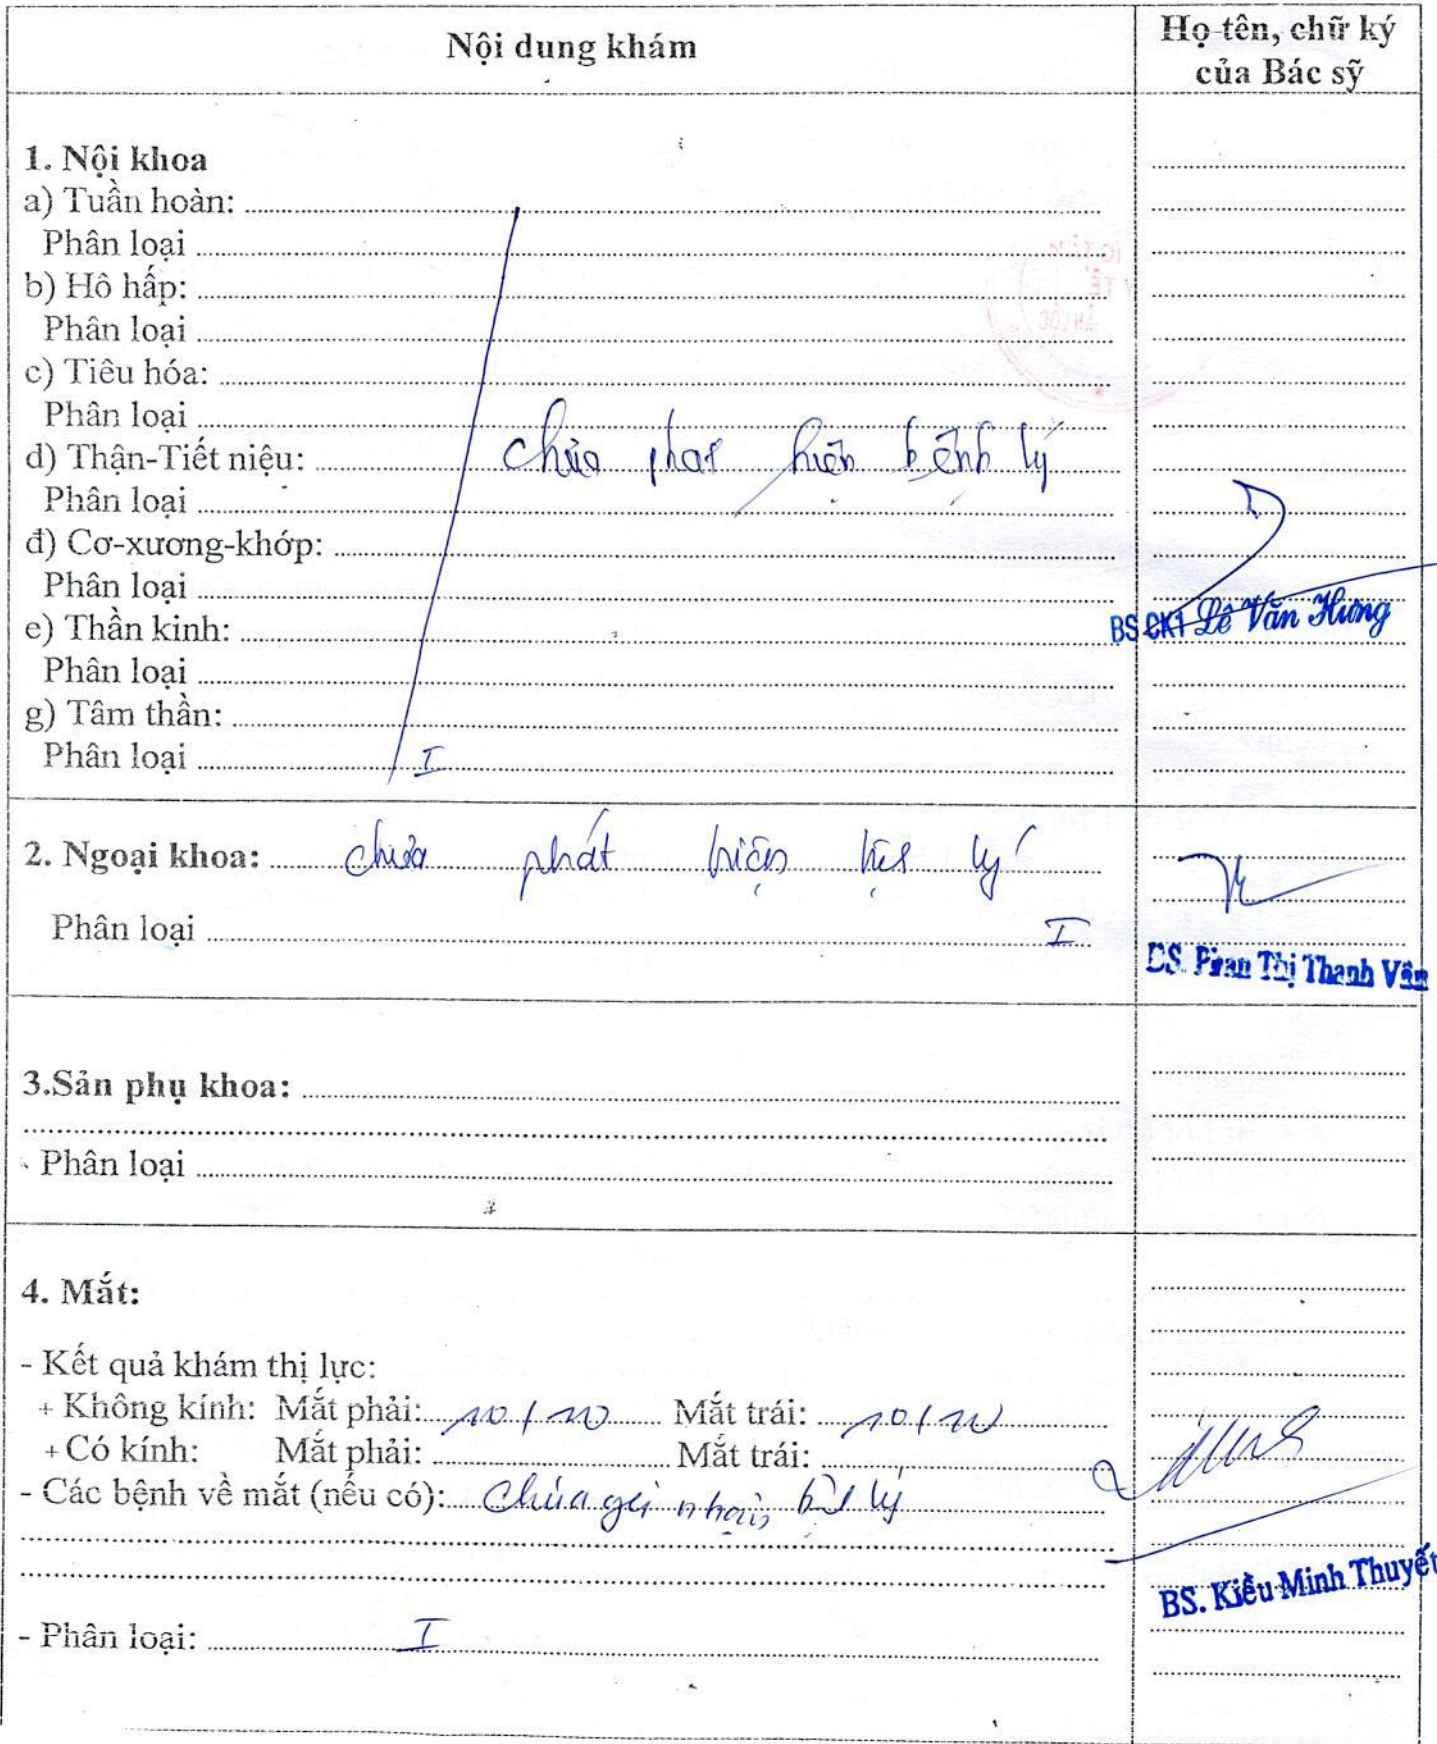 Nội dung khám
Họ tên, chữ ký
của Bác sỹ
1. Nội khoa
a) Tuần hoàn:
Phân loại
b) Hô hấp:
Phân loại
c) Tiêu hóa:
Phân loại
d) Thận-Tiết niệu: chưa phát hiện bệnh lý
Phân loại
đ) Cơ-xương-khớp:
Phân loại
BS CK1 Lê Văn Hưng
e) Thần kinh:
Phân loại
g) Tâm thần:
Phân loại I
2. Ngoại khoa: chưa phát hiện bệnh lý
Phân loại I
BS. Phan Thị Thanh Vân
3.Sản phụ khoa:
Phân loại
4. Mắt:
- Kết quả khám thị lực:
+ Không kính: Mắt phải: 10/10 Mắt trái: 10/10
+ Có kính: Mắt phải: Mắt trái:
- Các bệnh về mắt (nếu có): Chưa ghi nhận bệnh lý
BS. Kiều Minh Thuyết
- Phân loại: I